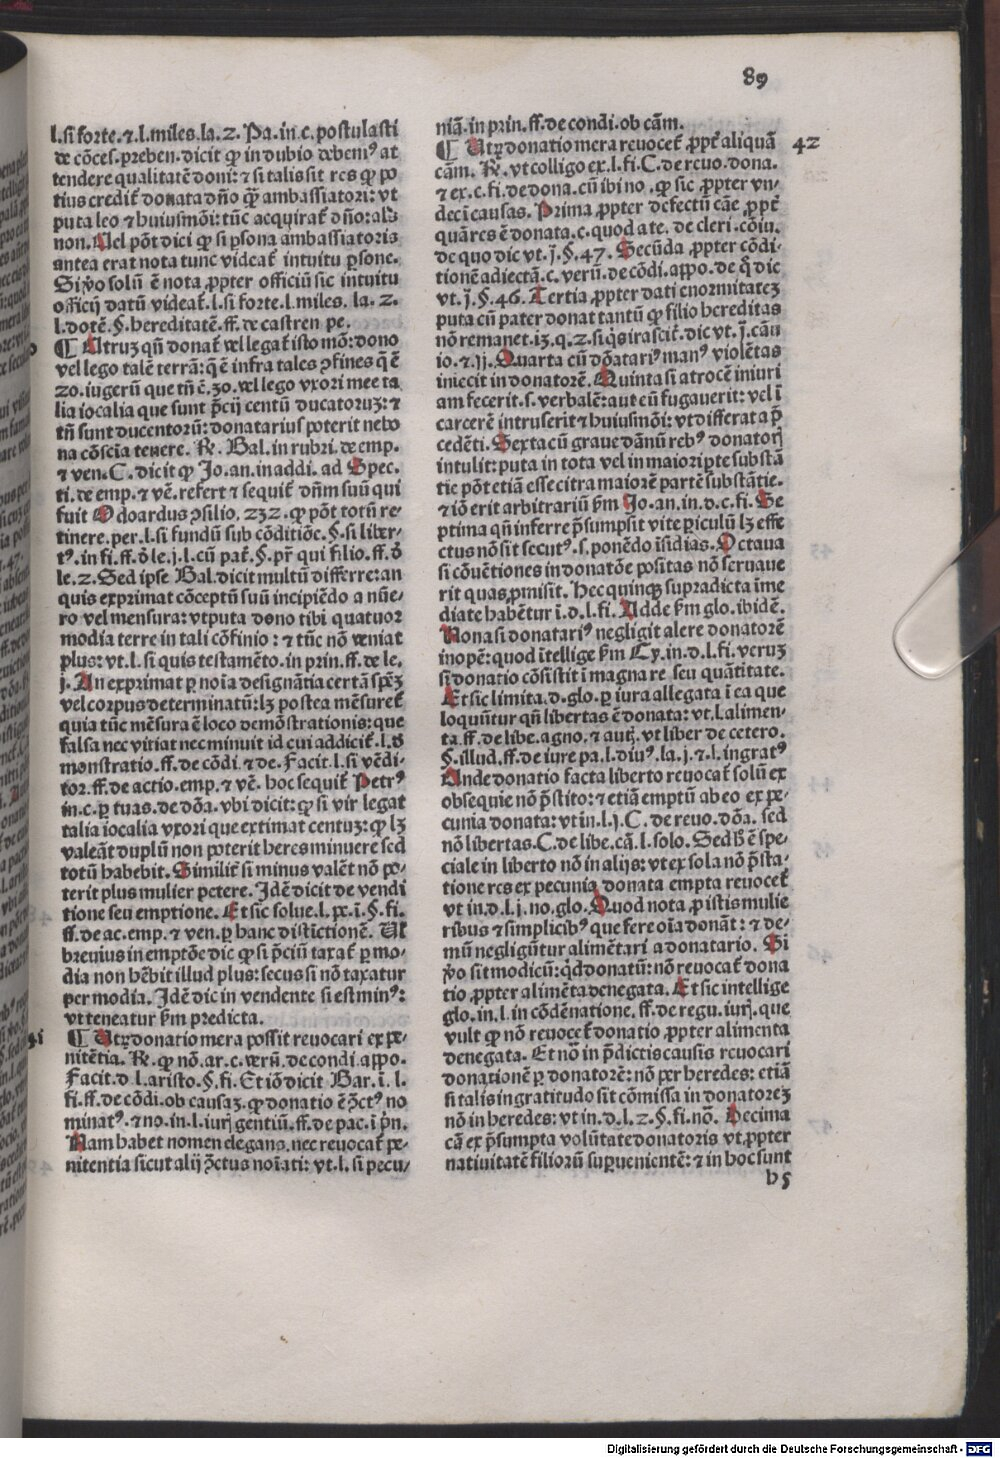 89
l.si forte.⁊ l.miles.la.2. Pa.in c.postulasti
de cōces.preben.dicit ꝙ in dubio debemꝰ at
tendere qualitatē doni: ⁊ si talis sit res ꝙ po
tius credit᷑ donata dño ꝙ̄ ambassiatori: vt
puta leo ⁊ huiusmōi: tūc acquirat᷑ dño: als
non. Uel pōt dici ꝙ si ꝑsona ambassiatoris
antea erat nota tunc videat᷑ intuitu ꝑsone.
Si ꝟo solū ē nota ꝓpter officiū sic intuitu
officij datū videat᷑.l.si forte.l.miles. la. 2.
l.dotē.§.hereditatē.ff.de castren pe.
¶ Utruꝫ qñ donat᷑ vel legat᷑ isto mō: dono
vel lego talē terrā: q̄ ē infra tales ꝯfines q̄ ē
20.iugerū que tñ ē.30.vel lego vxori mee ta
lia iocalia que sunt p̄cij centū ducatoruꝫ: ⁊
tñ sunt ducentorū: donatarius poterit neho
na cōscīa tenere. R̄. Bal.in rubri.de emp.
⁊ ven.C.dicit ꝙ Jo.an.in addi.ad Spec.
ti.de emp.⁊ vē.refert ⁊ sequit᷑ dñm suū qui
fuit Odoardus ꝯsilio.232.ꝙ pōt totū re-
tinere.per.l.si fundū sub cōditiōe.§.si liber-
tꝰ.in fi.ff.ꝺ̄ le.j.l.cū pat᷑.§.pr̄ qui filio.ff.ꝺ̄
le.2. Sed ipse Bal.dicit multū differre: an
quis exprimat cōceptū suū incipiēdo a nūe-
ro vel mensura: vtputa dono tibi quatuor
modia terre in tali cōfinio: ⁊ tūc nō veniat
plus: vt.l.si quis testamēto.in prin.ff.de le.
j. An exprimat ꝑ noīa designātia certā spēꝫ
vel corpus determinatū: lꝫ postea mēsuret᷑
quia tūc mēsura ē loco demōstrationis: que
falsa nec vitiat nec minuit id cui addicit᷑.l.ꝺ̄
monstratio.ff.de cōdi.⁊ de. Facit.l.si vēdi-
tor.ff.de actio.emp.⁊ vē. hoc sequit᷑ Petrꝰ
in.c.ꝑ tuas.de dōa.vbi dicit: ꝙ si vir legat
talia iocalia vxori que extimat centuꝫ: ꝙ lꝫ
valeāt duplū non poterit heres minuere sed
totū habebit. Similit᷑ si minus valēt nō po-
terit plus mulier petere. Idē dicit de vendi
tione seu emptione. Et sic solue.l.ꝑx.ī.§.fi.
ff.de ac.emp.⁊ ven.ꝑ hanc distictionē. Ul
breuius in emptōe dic ꝙ si p̄ciū taxat᷑ ꝑ mo-
dia non hēbit illud plus: secus si nō taxatur
per modia. Idē dic in vendente si est minꝰ:
vt teneatur ẜm predicta.
41
¶ Utꝝ donatio mera possit reuocari ex pe-
nitētia. R̄.ꝙ nō.ar.c.verū.de condi.appo.
Facit.d l.aristo.§.fi. Et iō dicit Bar.ī.l.
fi.ff.de cōdi.ob causaꝫ.ꝙ donatio ē ꝯ̄ctꝰ no
minatꝰ.⁊ no.in.l.iurꝭ gentiū.ff.de pac.ī p̄n.
Nam habet nomen elegans.nec reuocat᷑ pe-
nitentia sicut alij ꝯ̄ctus noīati: vt.l.si pecu/
niā.in prin.ff.de condi.ob cām.
42
¶ Utꝝ donatio mera reuocet᷑ ꝓpt᷑ aliquā
cām. R̄. vt colligo ex.l.fi.C.de reuo.dona.
⁊ ex.c.fi.de dona.cū ibi no.ꝙ sic ꝓpter vn-
decī causas. Prima ꝓpter defectū cāe ꝓpt᷑
quā res ē donata.c.quod a te.de cleri.cōiu.
de quo dic vt.j̄.§.47. Secūda ꝓpter cōdi-
tionē adiectā.c.verū.de cōdi.appo.de q̄ dic
vt.j̄.§.46. Tertia ꝓpter dati enormitateꝫ
puta cū pater donat tantū ꝙ filio hereditas
nō remanet.iꝫ.q.2.si q̇s irascit᷑.dic vt.j̄.cāu
io.⁊.jj. Quarta cū dōatariꝰ manꝰ violētas
iniecit in donatorē. Quinta si atrocē iniuri
am fecerit.s.verbalē: aut eū fugauerit: vel ī
carcerē intruserit ⁊ huiusmōi: vt differat a p̄
cedēti. Sexta cū graue dānū rebꝰ donatorꝭ
intulit: puta in tota vel in maiori ꝑte substā
tie pōt etiā esse citra maiorē partē substātie.
⁊ iō erit arbitrariū ẜm Jo.an.in.d.c.fi. Se
ptima qñ inferre p̄sumpsit vite ꝑiculū lꝫ effe
ctus nō sit secutꝰ.s.ponēdo īsidias. Octaua
si cōuētiones in donatōe positas nō seruaue
rit quas ꝓmisit. Hec quinqꝫ supradicta īme
diate habētur ī.d.l.fi. Adde ẜm glo.ibidē.
Nona si donatariꝰ negligit alere donatorē
inopē: quod ītellige ẜm Cy.in.d.l.fi.veruꝫ
si donatio cōsistit ī magna re seu quātitate.
Et sic limita.d.glo.ꝑ iura allegata ī ea que
loquūtur qñ libertas ē donata: vt.l.alimen-
ta.ff.de libe.agno.⁊ autj̄.vt liber de cetero.
§.illud.ff.de iure pa.l.diuꝰ.la.j.⁊.l.ingratꝰ
Unde donatio facta liberto reuocat᷑ solū ex
obsequie nō p̄stito: ⁊ etiā emptū ab eo ex pe-
cunia donata: vt in.l.j.C.de reuo.dōa. sed
nō libertas.C.de libe.cā.l.solo. Sed ꝟ ē spe-
ciale in liberto nō in alijs: vt ex sola nō p̄sta-
tione res ex pecunia donata empta reuocet᷑
vt in.d.l.j.no.glo. Quod nota ꝓ istis mulie
ribus ⁊ simplicibꝰ que fere oīa donāt: ⁊ de-
mū negligūtur alimētari a donatario. Si
ꝟo sit modicū: q̇d donatū: nō reuocat᷑ dona
tio ꝓpter alimēta denegata. Et sic intellige
glo.in.l.in cōdēnatione.ff.de regu.iurꝭ.que
vult ꝙ nō reuocet᷑ donatio ꝓpter alimenta
denegata. Et nō in p̄dictis causis reuocari
donationē ꝑ donatorē: nō per heredes: etiā
si talis ingratitudo sit cōmissa in donatoreꝫ
nō in heredes: vt in.d.l.2.§.fi.nō. Decima
cā ex p̄sumpta volūtate donatoris vt ꝓpter
natiuitatē filiorū suꝑuenientē: ⁊ in hoc sunt
h5
Digitalisierung gefördert durch die Deutsche Forschungsgemeinschaft - DFG